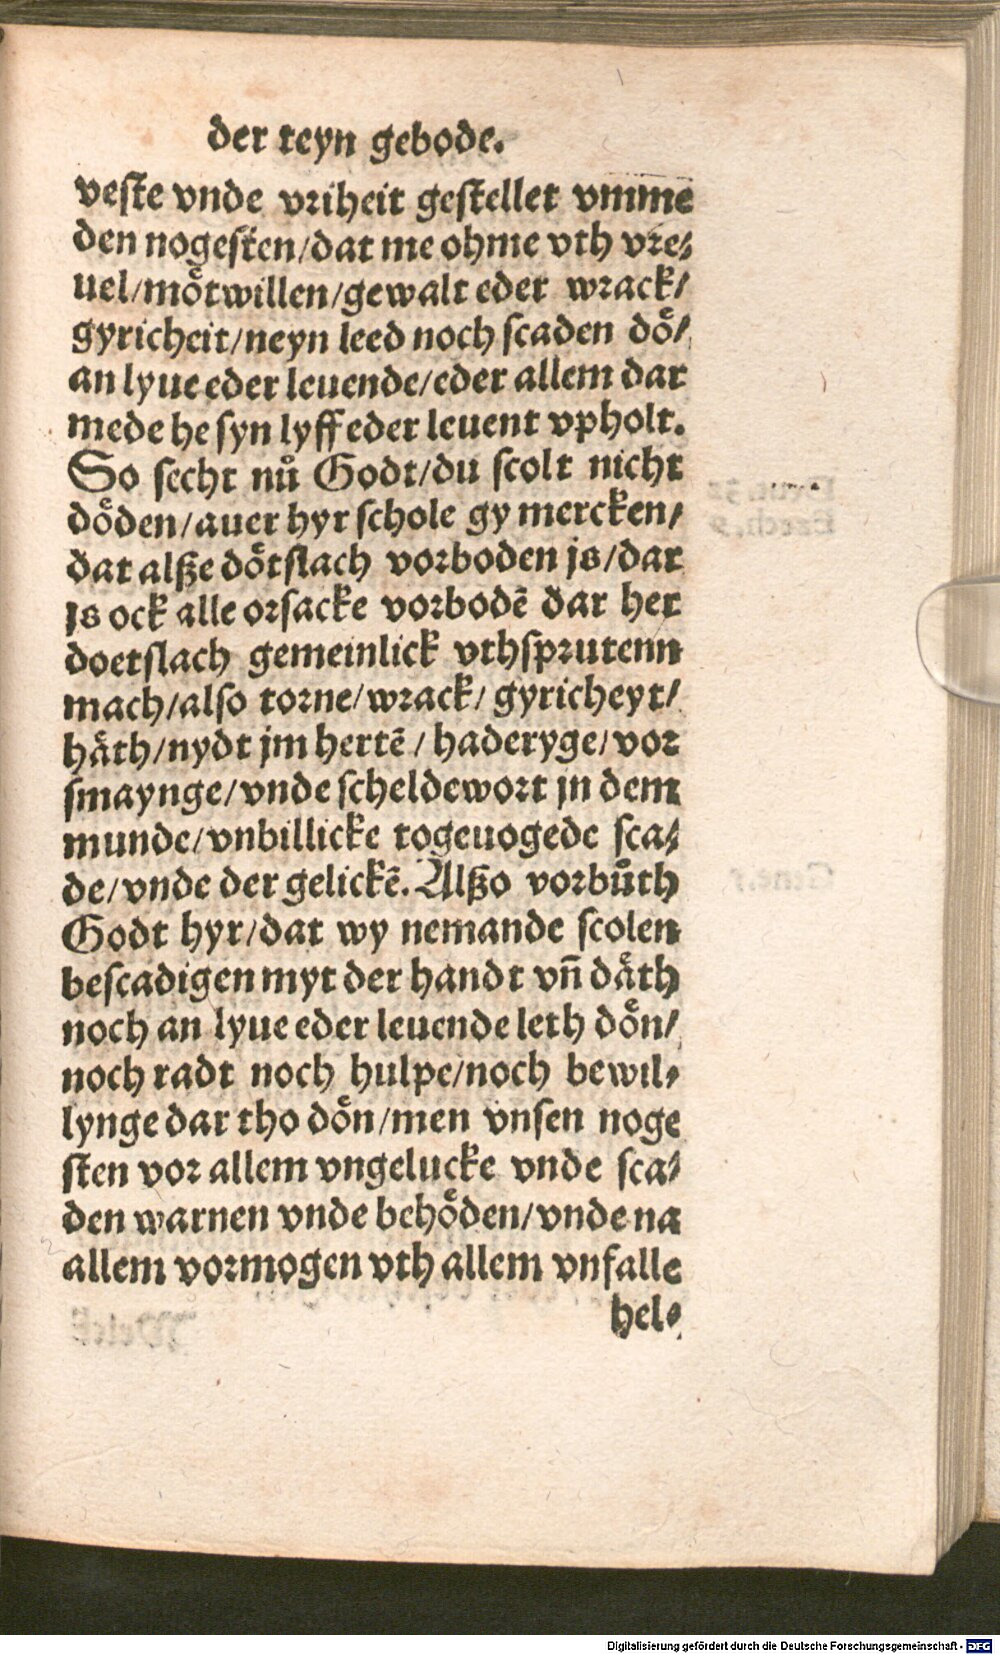 der teyn gebode.
veste vnde vriheit gestellet vmme
den nogesten/dat me ohme vth vre⸗
uel/moͤtwillen/gewalt eder wrack/
gyricheit/neyn leed noch scaden doͤ/
an lyue eder leuende/eder allem dar
mede he syn lyff eder leuent vpholt.
So secht nuͦ Godt/du scolt nicht
doͤden/auer hyr schole gy mercken/
dat alße doͤtslach vorboden js/dar
js ock alle orsacke vorbodē dar her
doetslach gemeinlick vthsprutenn
mach/also torne/wrack/gyricheyt/
haͤth/nydt jm hertē/haderyge/vor
smaynge/vnde scheldewort jn dem
munde/vnbillicke togeuogede sca⸗
de/vnde der gelickē. Alßo vorbuͤth
Godt hyr/dat wy nemande scolen
bescadigen myt der handt vn̄ daͤth
noch an lyue eder leuende leth doͤn/
noch radt noch hulpe/noch bewil⸗
lynge dar tho doͤn/men vnsen noge
sten vor allem vngelucke vnde sca⸗
den warnen vnde behoͤden/vnde na
allem vormogen vth allem vnfalle
hel⸗
Digitalisierung gefördert durch die Deutsche Forschungsgemeinschaft - DFG